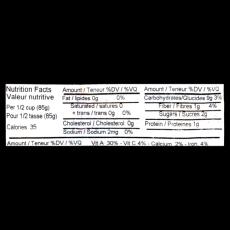 Nutrition Facts
Valeur nutritive
Per 1/2 cup (85g)
Pour 1/2 tasse (85g)
Calories 35
Amount / Teneur %DV / %VQ
Fat / lipides 0g 0%
Saturated / satures 0
+ trans / trans 0g 0%
Cholesterol / Cholesterol 0g
Sodium / Sodium 2mg 0%
Amount / Teneur %DV / %VQ
Carbohydrates/Glucides 9g 3%
Fiber / Fibres 1g 4%
Sugars / Sucres 2g
Protein / Proteines 1g
Amount / Teneur %DV / %VQ Vit A 30% - Vit C 4% - Calcium 2% - Iron 4%